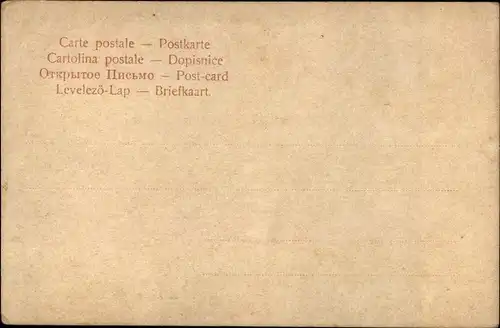 Carte postale — Postkarte
Cartolina postale — Dopisnice
Открытое Письмо — Post-card
Levelező-Lap — Briefkaart.